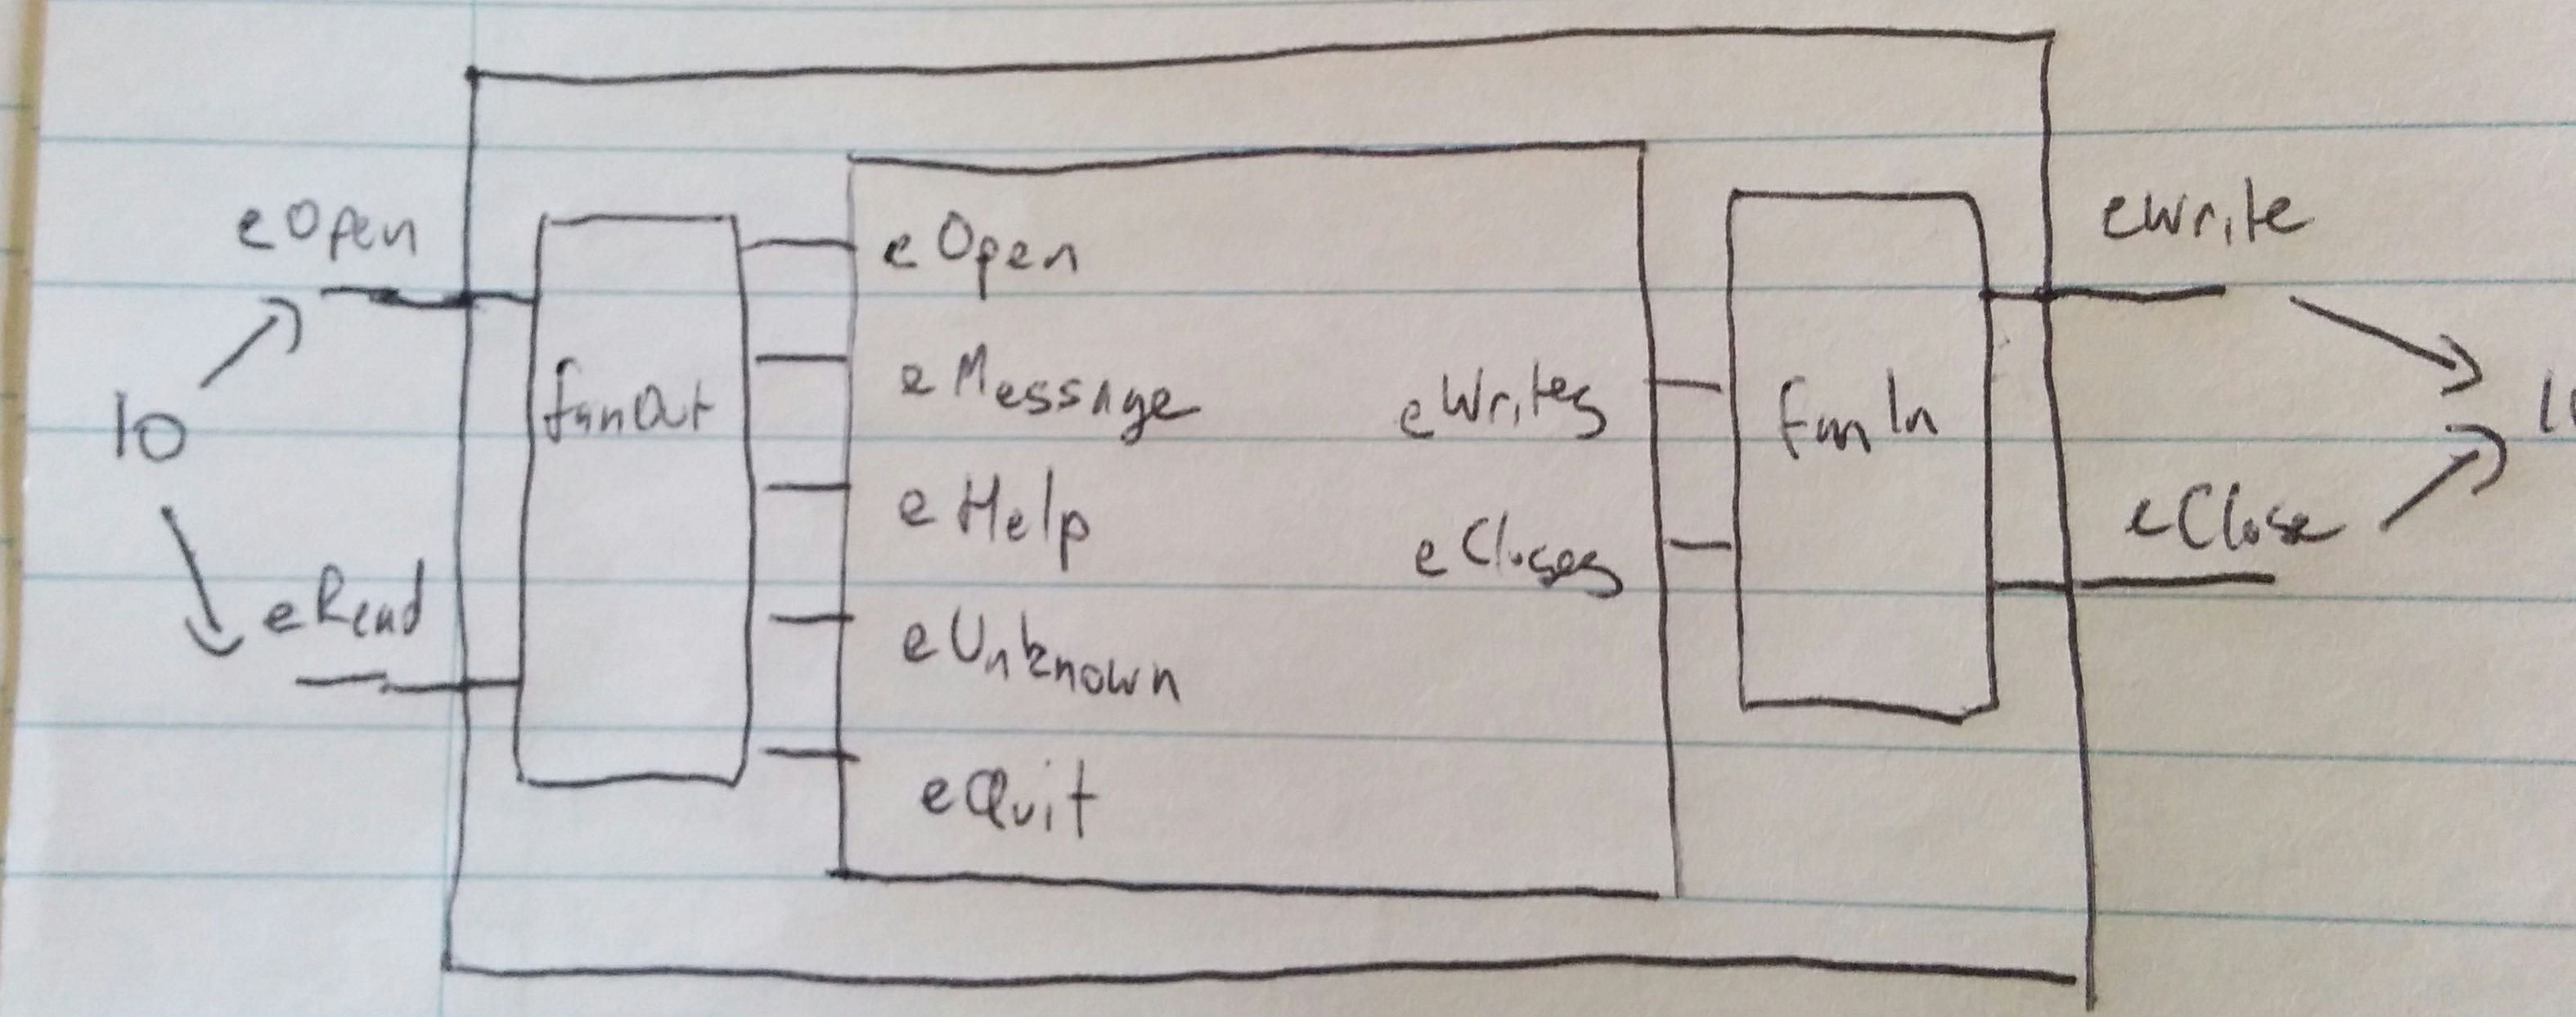 IO
eOpen
eRead
fanOut
eOpen
eMessage
eHelp
eUnknown
eQuit
eWrites
eCloses
fanIn
eWrite
eClose